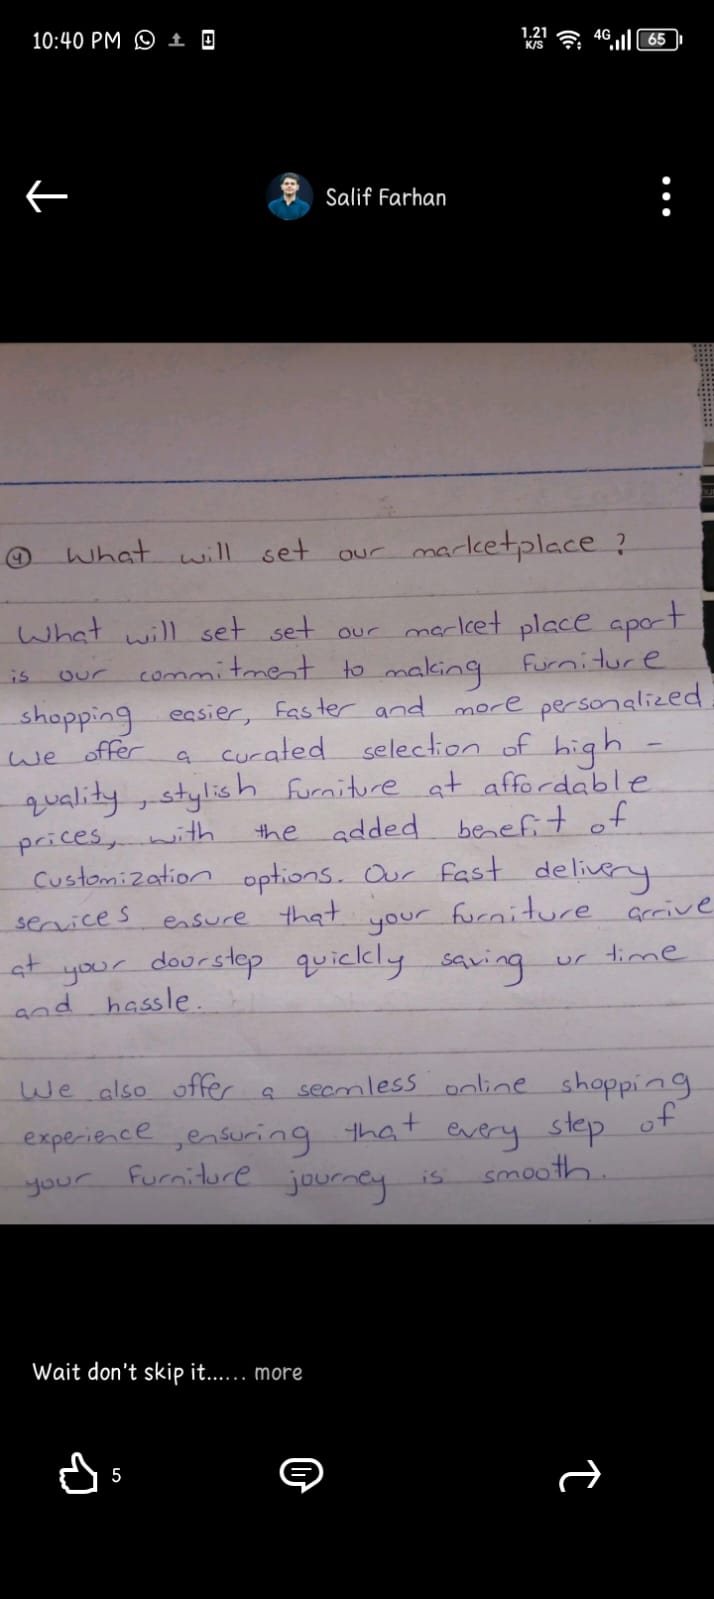 10:40 PM
1.21 K/S 4G 65
Salif Farhan
④ What will set our marketplace ?
What will set set our market place apart
is our commitment to making furniture
shopping easier, faster and more personalized.
We offer a curated selection of high -
quality, stylish furniture at affordable
prices, with the added benefit of
Customization options. Our fast delivery
services ensure that your furniture arrive
at your doorstep quickly saving ur time
and hassle.
We also offer a seamless online shopping
experience, ensuring that every step of
your furniture journey is smooth.
Wait don't skip it...... more
5